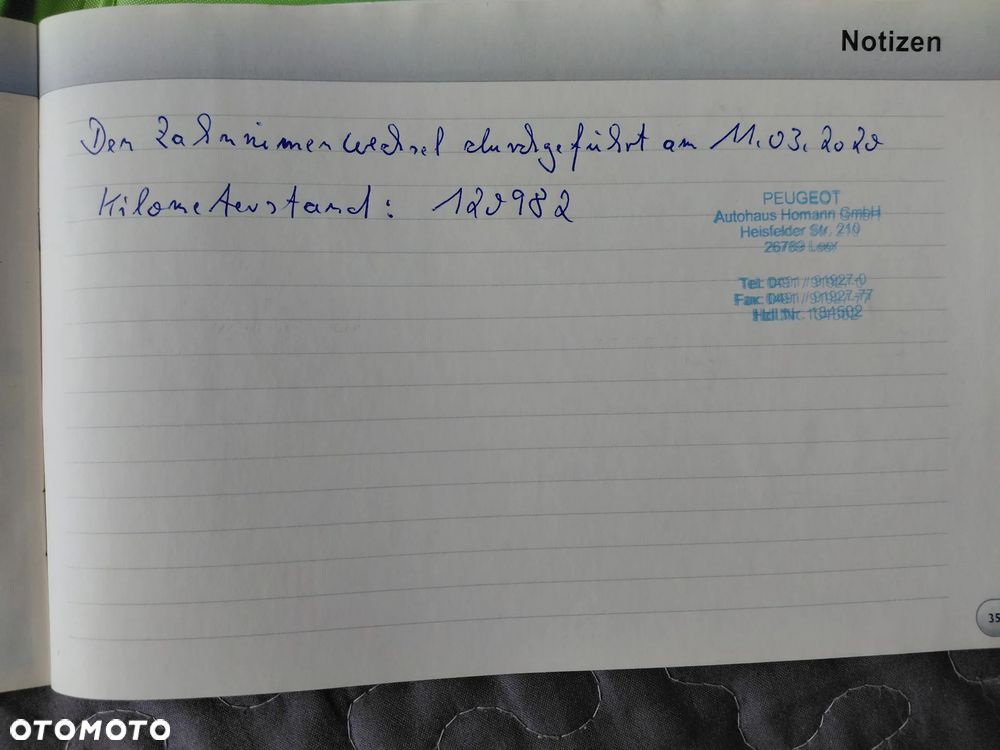 Notizen
Den Zahnriemenwechsel durchgeführt am 11.03.2020
Kilometerstand: 120982
PEUGEOT
Autohaus Homann GmbH
Heisfelder Str. 210
26789 Leer
Tel: 0491 / 91927-0
Fax: 0491 / 91927-77
Hdl.Nr. 134502
35
OTOMOTO